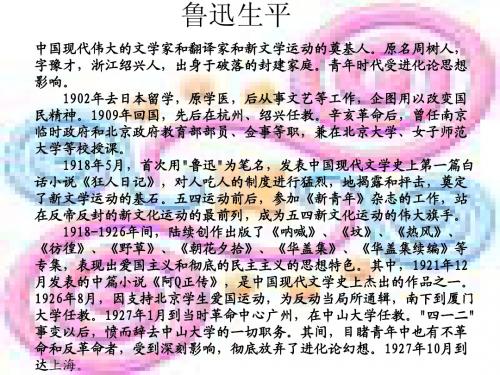 鲁迅生平
中国现代伟大的文学家和翻译家和新文学运动的奠基人。原名周树人，
字豫才，浙江绍兴人，出身于破落的封建家庭。青年时代受进化论思想
影响。
1902年去日本留学，原学医，后从事文艺等工作，企图用以改变国
民精神。1909年回国，先后在杭州、绍兴任教。辛亥革命后，曾任南京
临时政府和北京政府教育部部员、佥事等职，兼在北京大学、女子师范
大学等校授课。
1918年5月，首次用"鲁迅"为笔名，发表中国现代文学史上第一篇白
话小说《狂人日记》，对人吃人的制度进行猛烈，地揭露和抨击，奠定
了新文学运动的基石。五四运动前后，参加《新青年》杂志的工作，站
在反帝反封的新文化运动的最前列，成为五四新文化运动的伟大旗手。
1918-1926年间，陆续创作出版了《呐喊》、《坟》、《热风》、
《彷徨》、《野草》、《朝花夕拾》、《华盖集》、《华盖集续编》等
专集，表现出爱国主义和彻底的民主主义的思想特色。其中，1921年12
月发表的中篇小说《阿Q正传》，是中国现代文学史上杰出的作品之一。
1926年8月，因支持北京学生爱国运动，为反动当局所通辑，南下到厦门
大学任教。1927年1月到当时革命中心广州，在中山大学任教。"四一二"
事变以后，愤而辞去中山大学的一切职务。其间，目睹青年中也有不革
命和反革命者，受到深刻影响，彻底放弃了进化论幻想。1927年10月到
达上海。